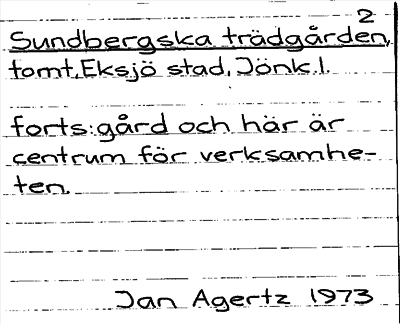 2
Sundbergska trädgården,
tomt, Eksjö stad, Jönk.l.
forts: gård och här är
centrum för verksamhe-
ten.
Jan Agertz 1973